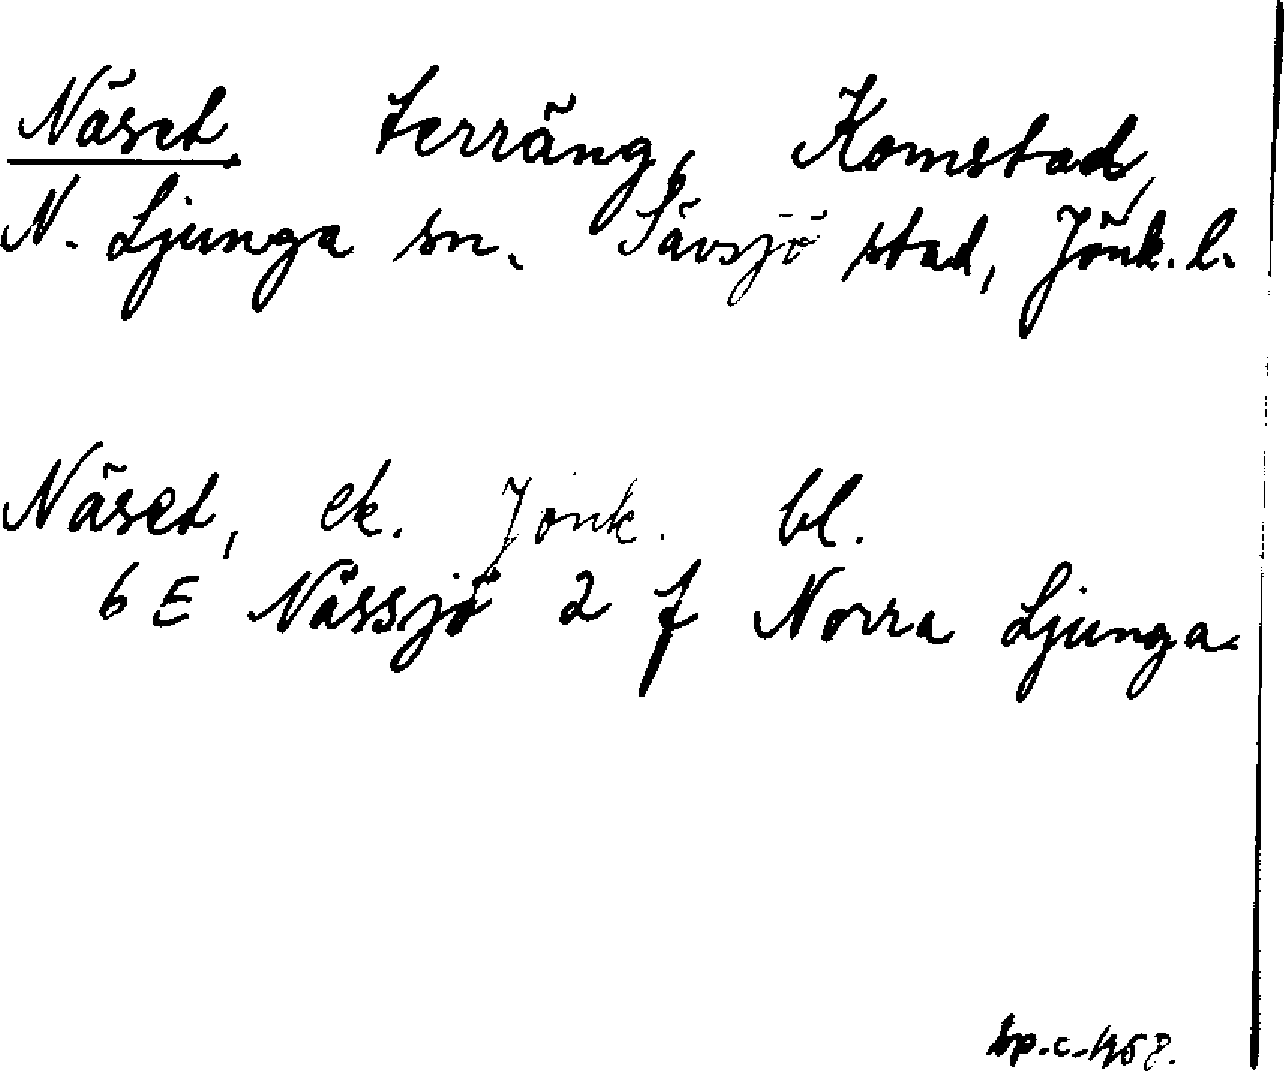 Näset terräng, Komstad,
N. Ljunga sn. Sävsjö stad, Jönk. l.
Näset, ek. Jönk. bl.
6 E Nässjö 2 f Norra Ljunga